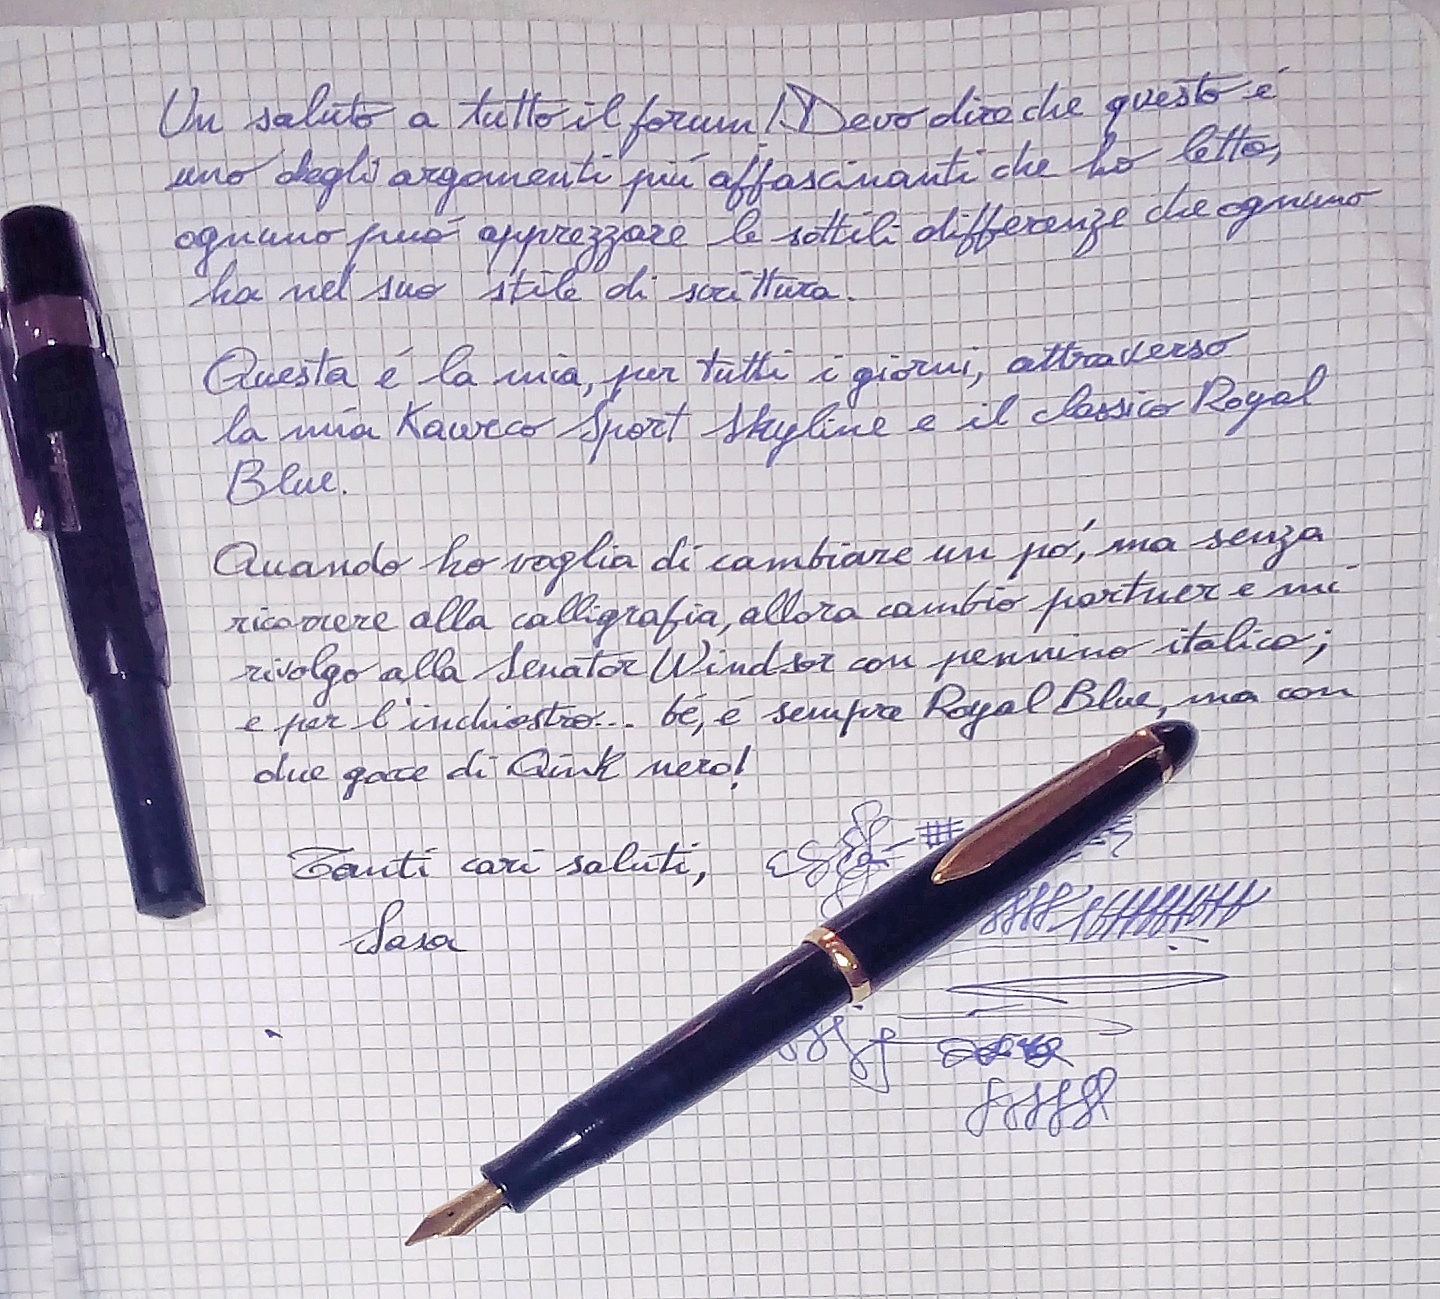 Un saluto a tutto il forum! Devo dire che questo é
uno degli argomenti piú affascinanti che ho letto,
ognuno puó apprezzare le sottili differenze che ognuno
ha nel suo stile di scrittura.
Questa é la mia, per tutti i giorni, attraverso
la mia Kaweco Sport Skyline e il classico Royal
Blue.
Quando ho voglia di cambiare un pó, ma senza
ricorrere alla calligrafia, allora cambio partner e mi
rivolgo alla Senator Windsor con pennino italico;
e per l'inchiostro... bé, é sempre Royal Blue, ma con
due gocce di Quink nero!
Tanti cari saluti,
Sasa